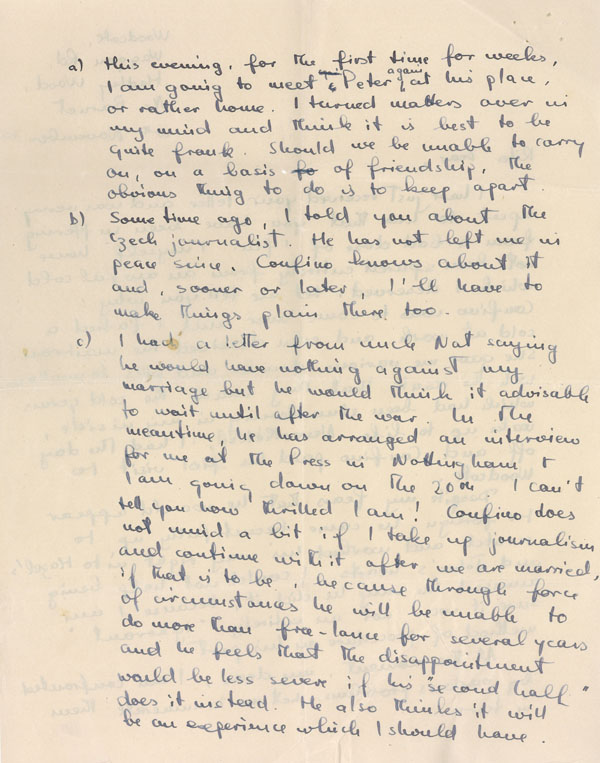 a) This evening, for the first time for weeks,
I am going to meet Peter again at his place,
or rather home. I turned matters over in
my mind and think it is best to be
quite frank. Should we be unable to carry
on, on a basis fo of friendship, the
obvious thing to do is to keep apart.
b) Some time ago, I told you about the
Czech journalist. He has not left me in
peace since. Confino knows about it
and, sooner or later, I'll have to
make things plain there too.
c) I had a letter from uncle Nat saying
he would have nothing against my
marriage but he would think it advisable
to wait until after the war. In the
meantime, he has arranged an interview
for me at the Press in Nottingham &
I am going down on the 20th. I can't
tell you how thrilled I am! Confino does
not mind a bit if I take up journalism
and continue with it after we are married,
if that is to be, because through force
of circumstances he will be unable to
do more than free-lance for several years
and he feels that the disappointment
would be less severe if his "second half"
does it instead. He also thinks it will
be an experience which I should have.